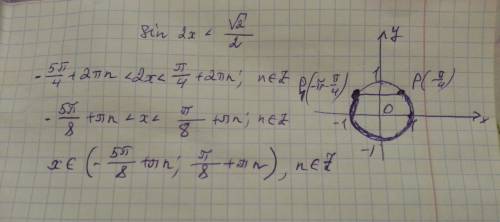 sin 2x < √2/2
-5π/4 + 2πn < 2x < π/4 + 2πn; n∈Z
-5π/8 + πn < x < π/8 + πn; n∈Z
x∈ (-5π/8 + πn; π/8 + πn), n∈Z
y
1
P(-π-π/4)
P(π/4)
-1
0
1
x
-1